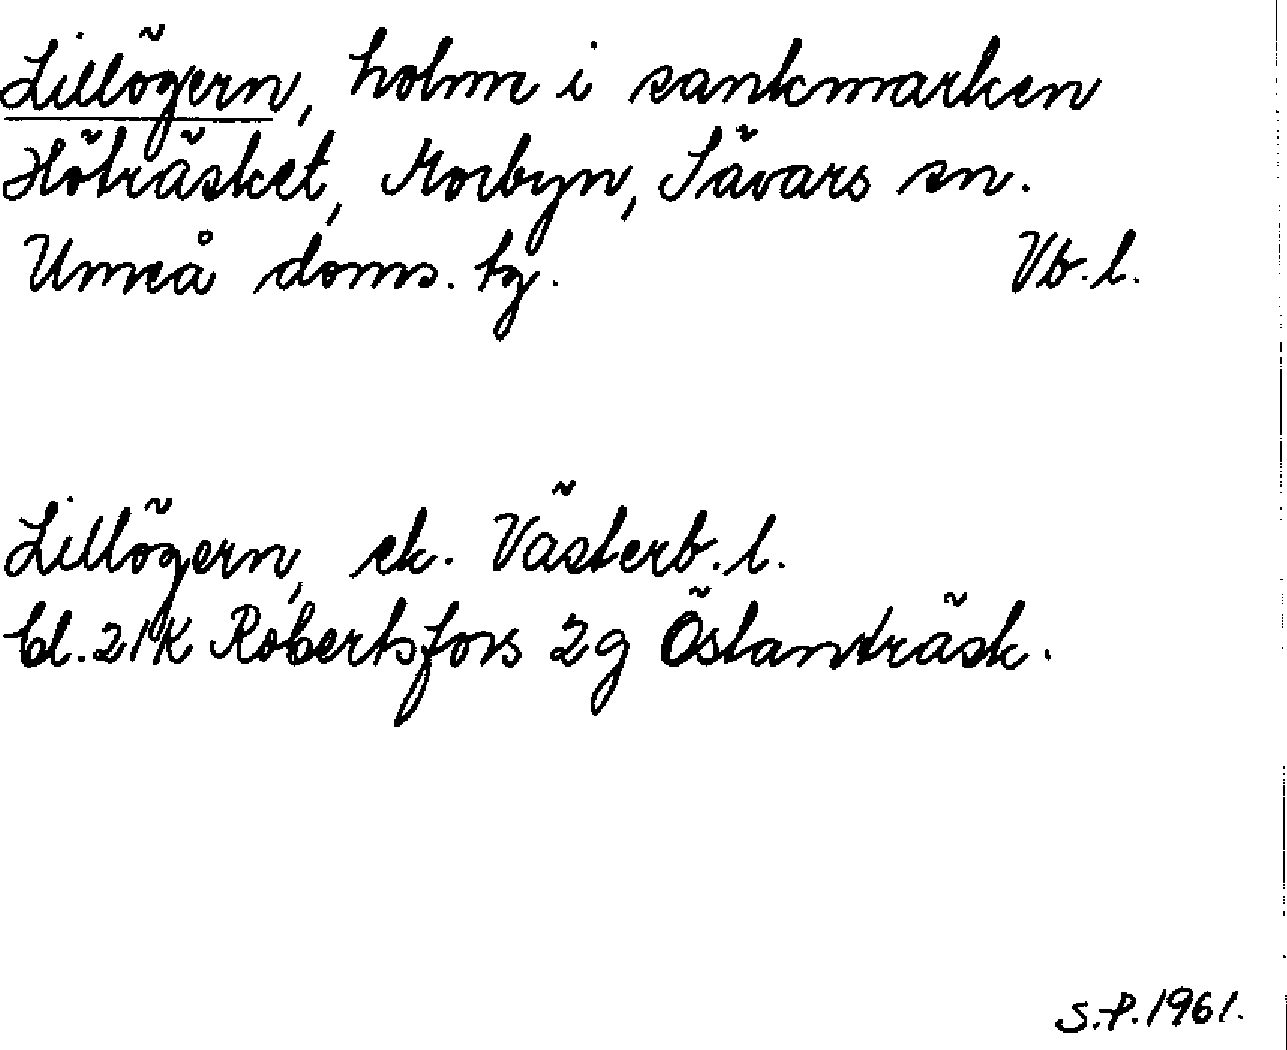 Lillögern, holm i sankmarken
Höträsket, Morbyn, Sävars sn.
Umeå doms. tg. Vb. l.
Lillögern, ek. Västerb. l.
bl. 21K Robertsfors 2g Östanträsk.
S.P. 1961.